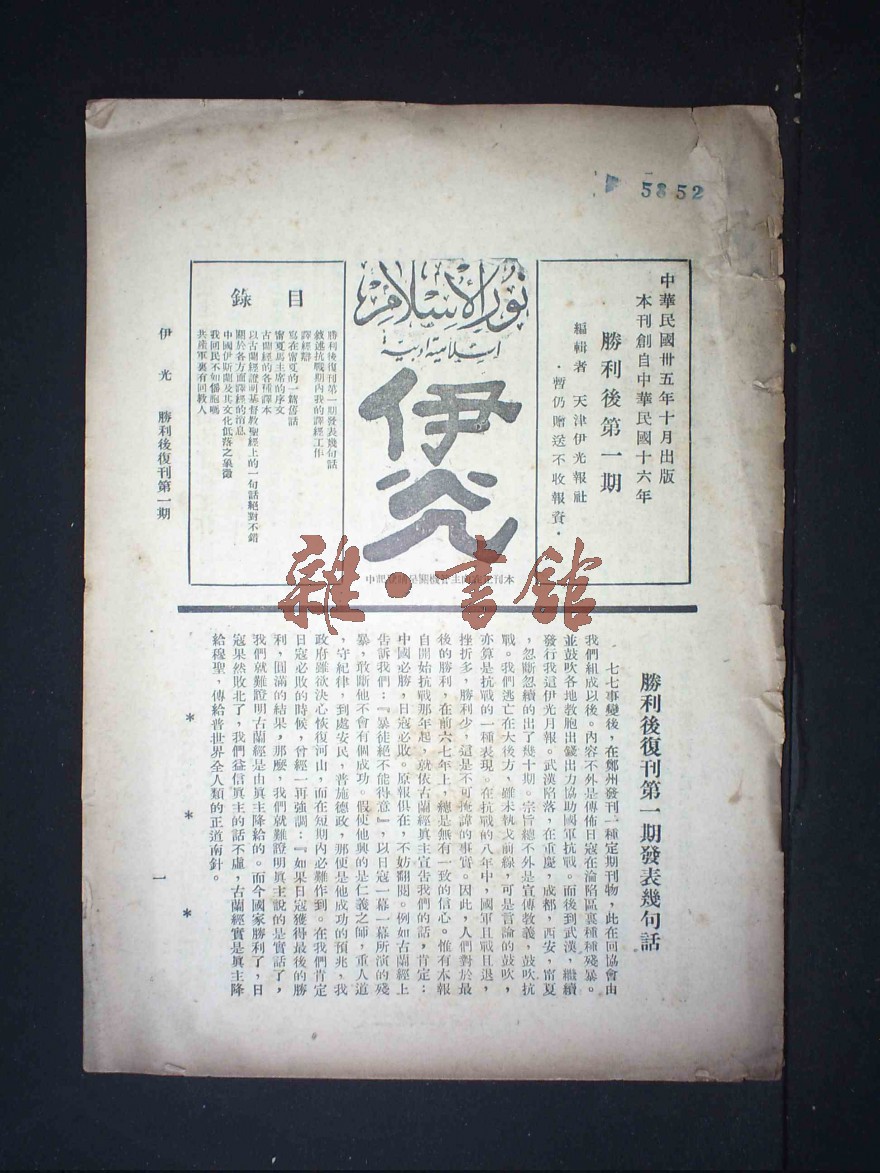 5852
中華民國卅五年十月出版
本刊創自中華民國十六年
勝利後第一期
編輯者 天津伊光報社
・暫仍贈送不收報資・
نور الإسلام
伊光
目錄
勝利後復刊第一期發表幾句話
敘述抗戰期內我的譯經工作
譯經辯
寫在甯夏的一篇舊話
甯夏馬主席的序文
古蘭經的各種譯本
以古蘭經證明基督教聖經上的一句話絕對不錯
關於各方面譯經的消息
中國伊斯蘭及其文化低落之象徵
我回民不如猶胞嗎
共產軍裏有回教人
伊光 勝利後復刊第一期
一
雜・書館
勝利後復刊第一期發表幾句話
七七事變後，在鄭州發刊一種定期刊物，此在回協會由
我們組成以後。內容不外是傳佈日寇在淪陷區裏種種殘暴。
並鼓吹各地教胞出錢出力協助國軍抗戰。而後到武漢，繼續
發行我這伊光月報。武漢陷落，在重慶，成都，西安，甯夏
，忽斷忽續的出了幾十期。宗旨總不外是宣傳教義，鼓吹抗
戰。我們逃亡在大後方，雖未執戈前線，可是言論的鼓吹，
亦算是抗戰的一種表現。在抗戰的八年中，國軍且戰且退，
挫折多，勝利少，這是不可掩諱的事實。因此，人們對於最
後的勝利，在前六七年上，總是無有一致的信心。惟有本報
自開始抗戰那年起，就依古蘭經真主宣告我們的話，肯定：
中國必勝，日寇必敗。原報俱在，不妨翻閱。例如古蘭經上
告訴我們：『暴徒絕不能得意』，以日寇一幕一幕所演的殘
暴，敢斷他不會有個成功。假使他興的是仁義之師，重人道
，守紀律，到處安民，普施德政，那便是他成功的預兆，我
政府雖欲決心恢復河山，而在短期內必難作到。在我們肯定
日寇必敗的時候，曾經一再強調：『如果日寇獲得最後的勝
利，圓滿的結果，那麼，我們就難證明真主說的是實話了，
我們就難證明古蘭經是由真主降給的。而今國家勝利了，日
寇果然敗北了，我們益信真主的話不虛，古蘭經實是真主降
給穆聖，傳給普世界全人類的正道南針。
* * *